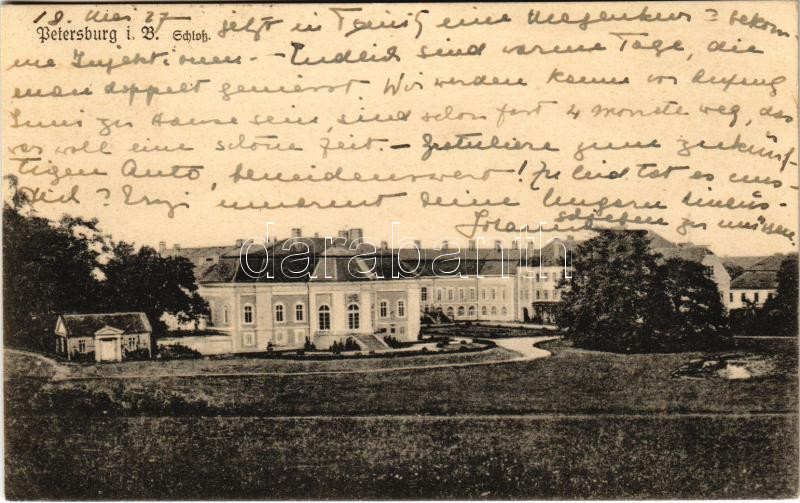 18. Mai 27
Petersburg i. B. Schloß.
jetzt in eine ? bekom-
me Injektionen. - Endlich sind warme Tage, die
man doppelt geniesst. Wir werden kaum vor Anfang
Juni zu Hause sein, sind schon fast 4 Monate weg, das
war wohl eine schöne Zeit. - Gratuliere zum zukünf-
tigen Auto, beneidenswert! Zu leid tat es uns
dich? Erzi deine Ungarn hinaus-
schieben zu müssen
darabanth